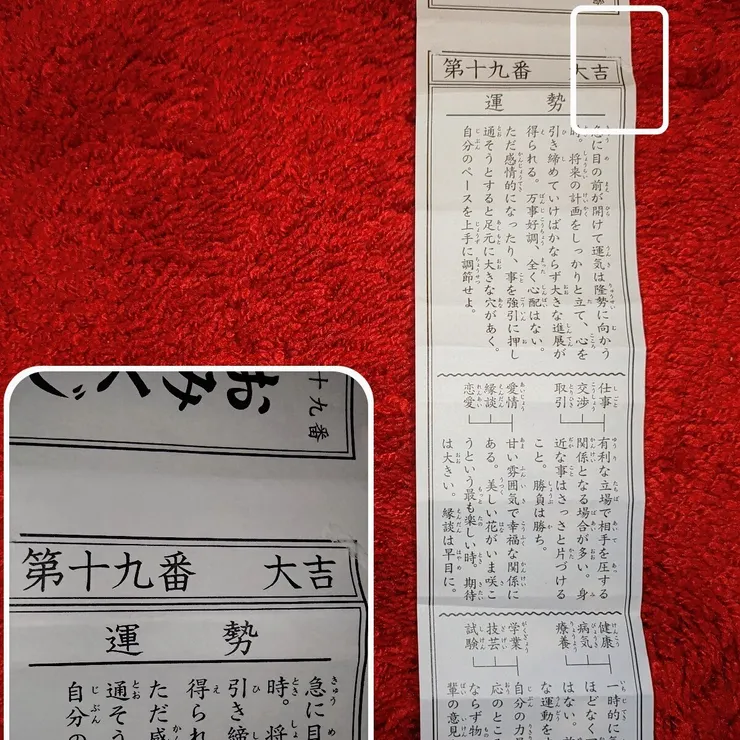 第十九番　大吉
運　勢
急に目の前が開けて運気は隆勢に向かう
時。将来の計画をしっかりと立て、心を
引き締めていけばかならず大きな進展が
得られる。万事好調、全く心配はない。
ただ感情的になったり、事を強引に押し
通そうとすると足元に大きな穴があく。
自分のペースを上手に調節せよ。
仕事
交渉
取引
有利な立場で相手を圧する
関係となる場合が多い。身
近な事はさっさと片づける
こと。勝負は勝ち。
愛情
縁談
恋愛
甘い雰囲気で幸福な関係に
ある。美しい花がいま咲こ
うという最も楽しい時。期待
は大きい。縁談は早目に。
健康
病気
療養
一時的に
ほどなく
はない。
な運動を
学業
技芸
試験
自分の力
応のところ
ならず物
輩の意見
十九番
おみくじ
第十九番　大吉
運　勢
急に目
時。将
引き締
得られ
ただ感
通そう
自分の